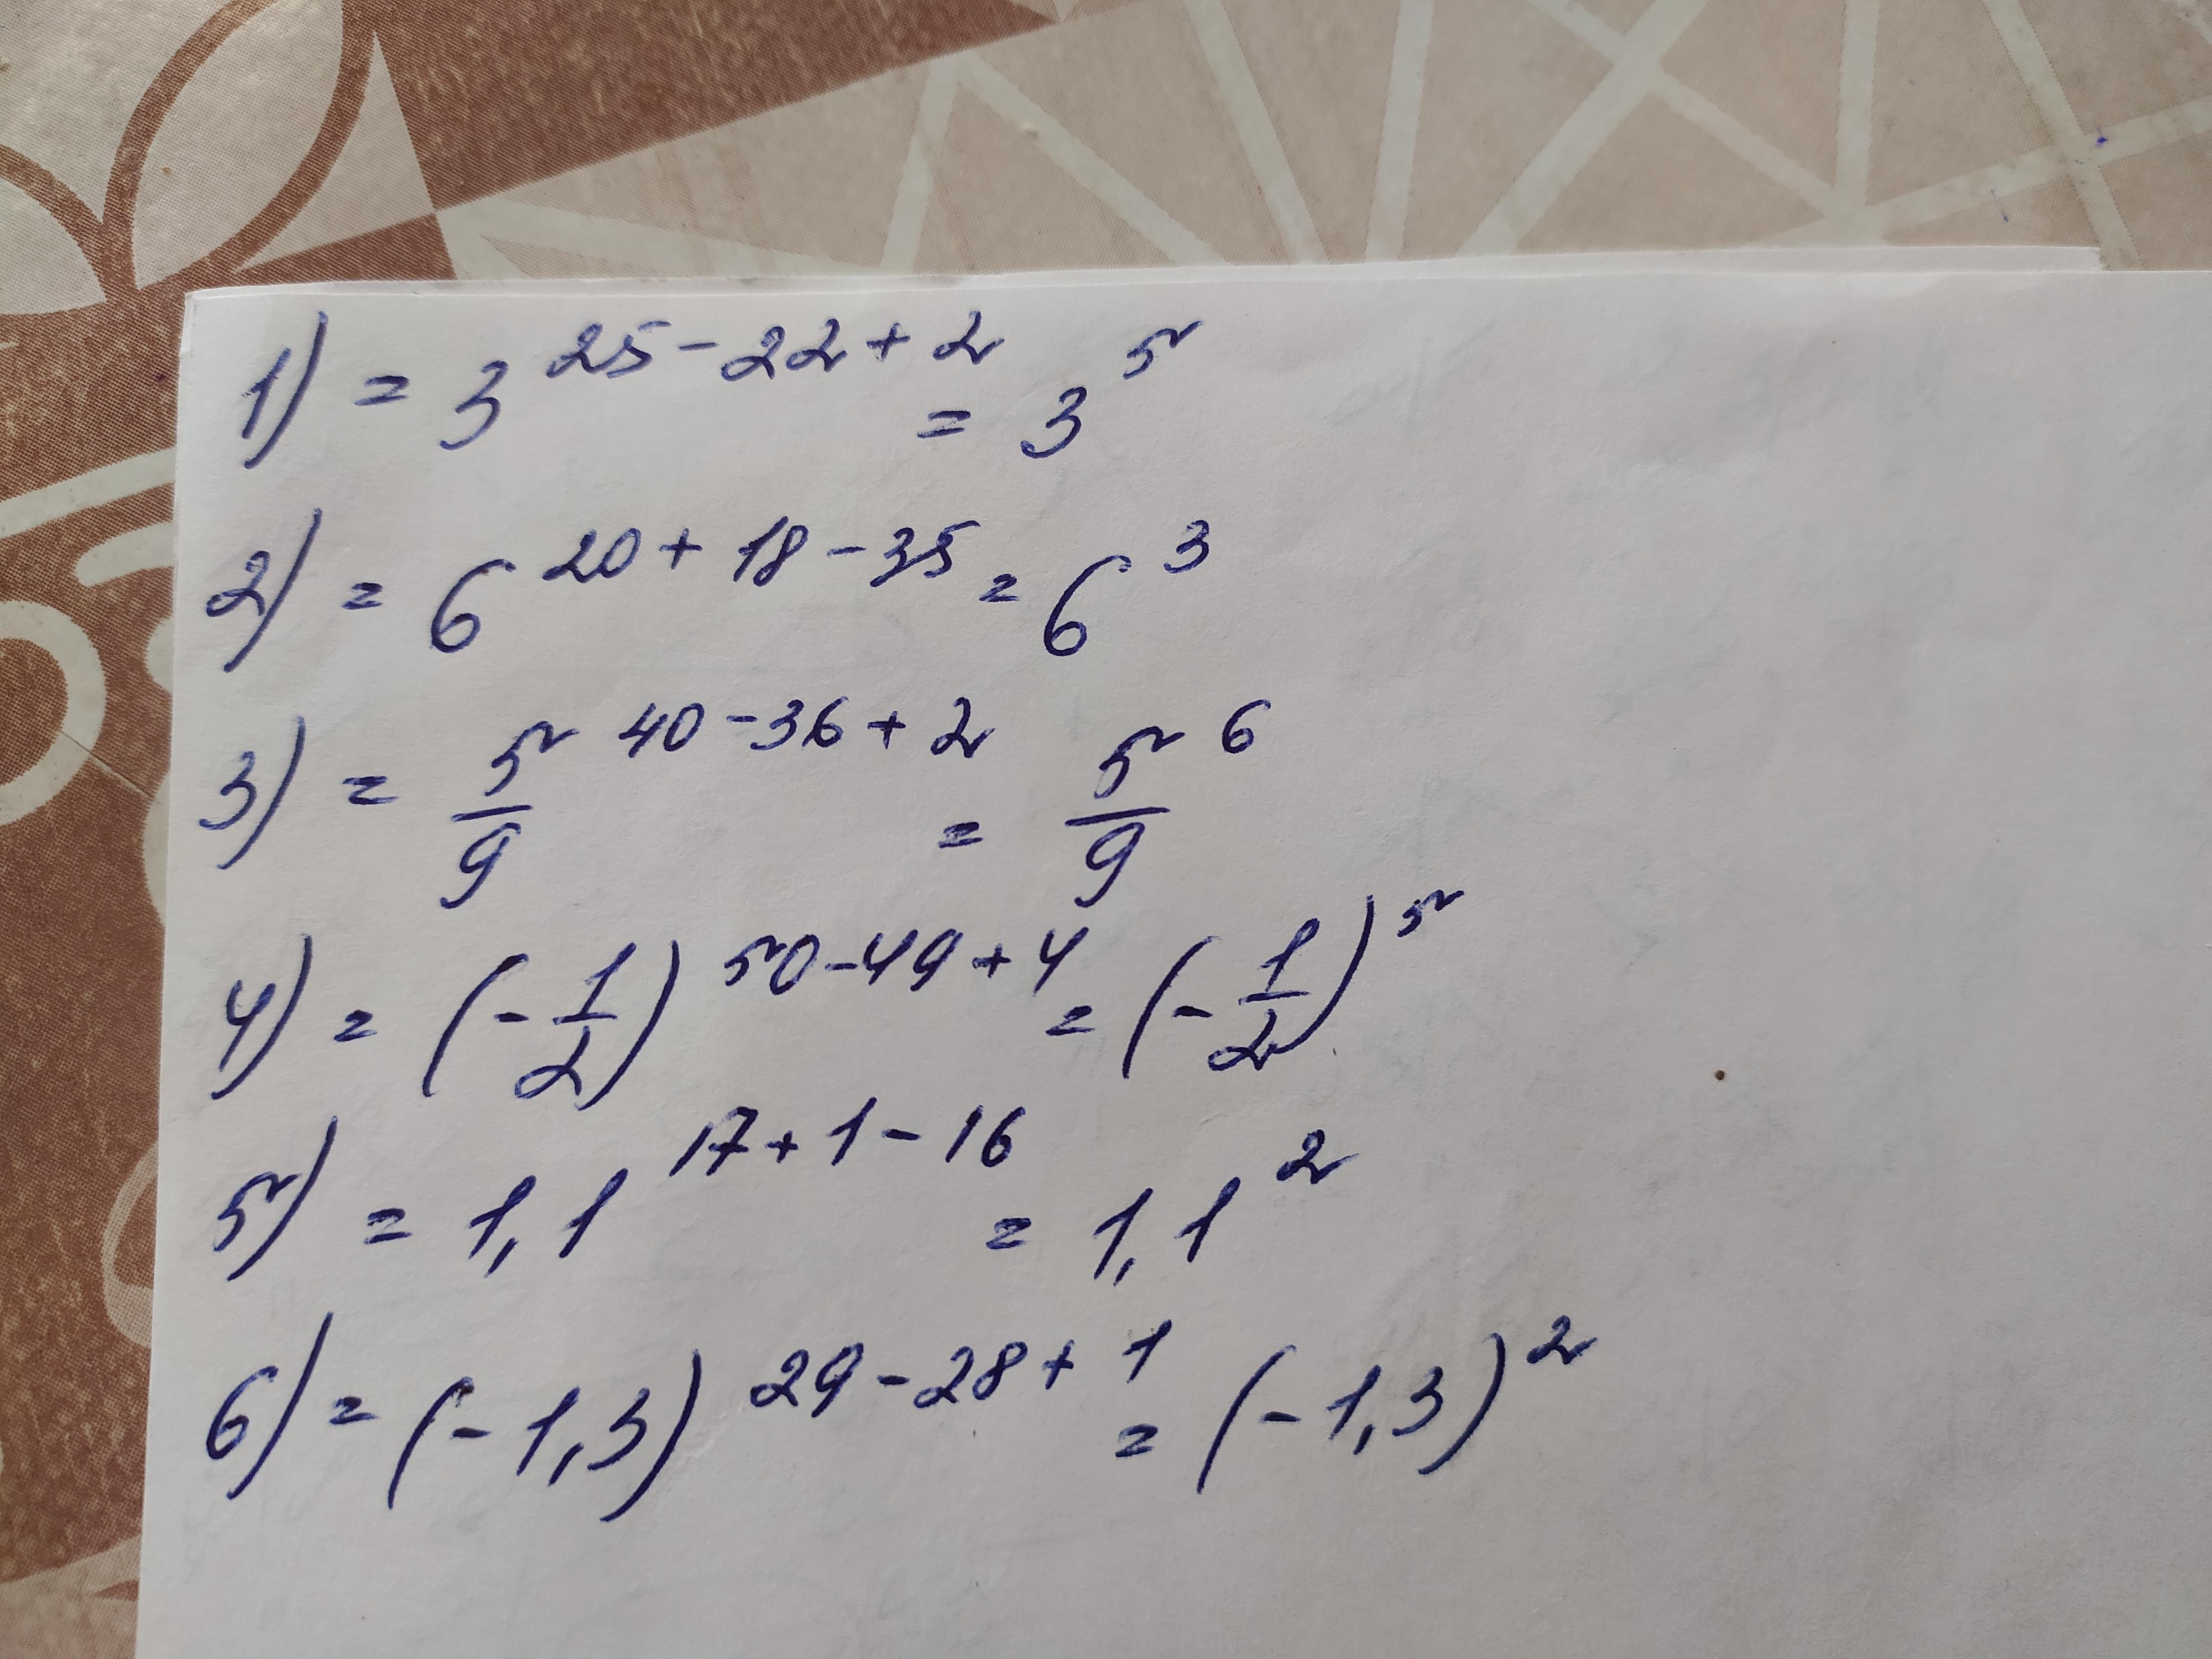 1) = 3^{25-22+2} = 3^5
2) = 6^{20+18-35} = 6^3
3) = \frac{5}{9}^{40-36+2} = \frac{5}{9}^6
4) = (-\frac{1}{2})^{50-49+4} = (-\frac{1}{2})^5
5) = 1,1^{17+1-16} = 1,1^2
6) = (-1,3)^{29-28+1} = (-1,3)^2